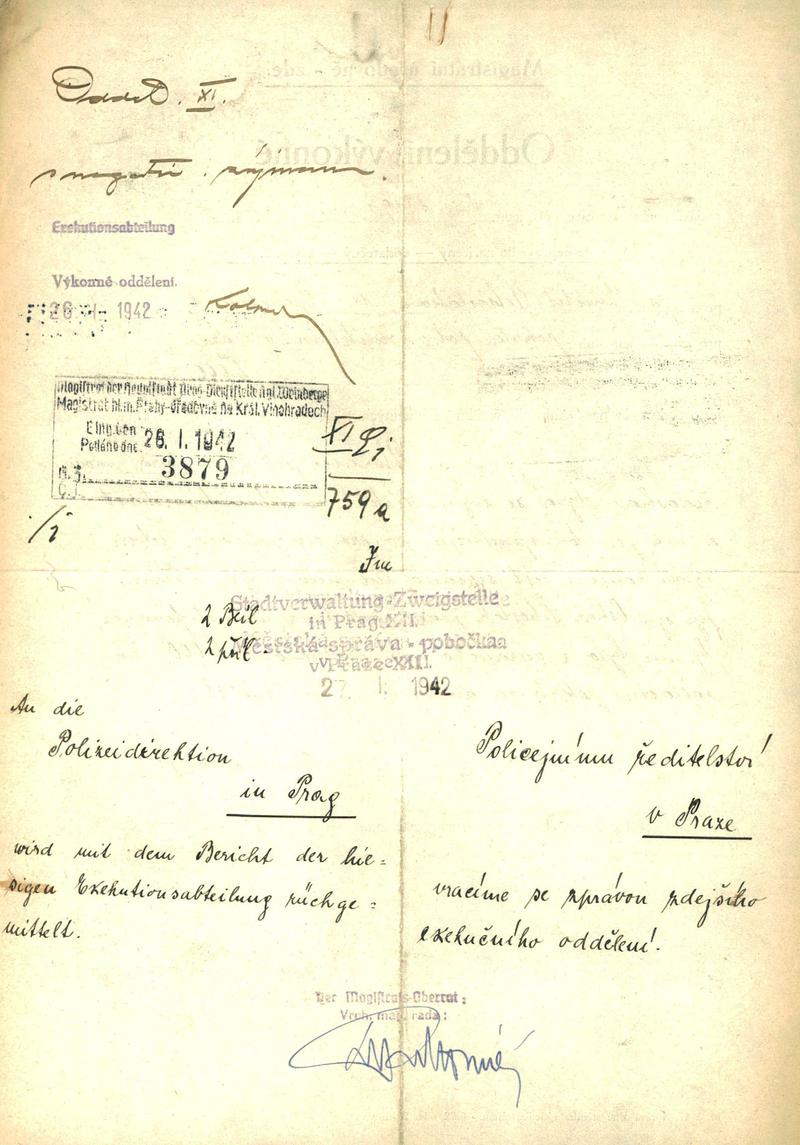 Odděl. XI.
Exekutionsabteilung
Výkonné oddělení.
26 I. 1942
Magistrat der Hauptstadt Prag-Dienststelle Kgl. Weinberge
Magistrát hl. m. Prahy-úřadovna na Král. Vinohradech
Eing. den
Podáno dne: 26. I. 1942
3879
XI
759 a
/i
2 Beil
2 příl
Stadtverwaltung-Zweigstelle
in Prag XII.
Městská správa - pobočka
v Praze XII.
27 I. 1942
An die
Polizeidirektion
in Prag
wird mit dem Bericht der hie-
sigen Exekutionsabteilung rückge-
mittelt.
Policejnímu ředitelství
v Praze
vracíme se zprávou zdejšího
exekučního oddělení.
Der Magistrats-Oberrat:
Vrch. mag. rada: